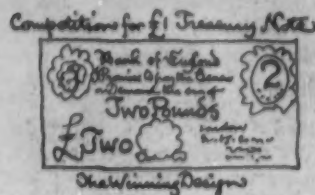 Competition for £1 Treasury Note
Bank of England
Promise to pay the Bearer
on demand the sum of
Two Pounds
2
£ Two
London
The Winning Design